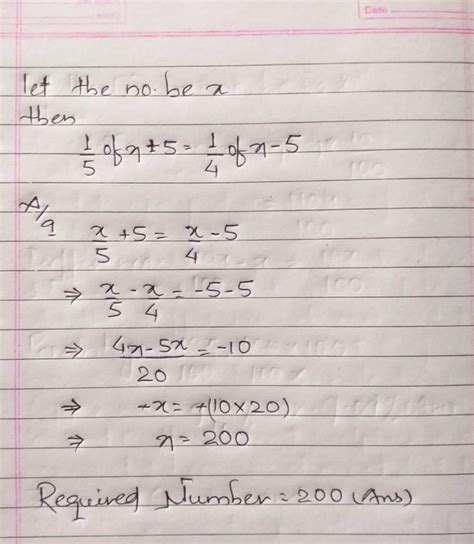 Date
let the no. be x
then
1/5 of x + 5 = 1/4 of x - 5
A/q x/5 + 5 = x/4 - 5
⇒ x/5 - x/4 = -5 - 5
⇒ (4x - 5x)/20 = -10
⇒ -x = -(10×20)
⇒ x = 200
Required Number = 200 (Ans)